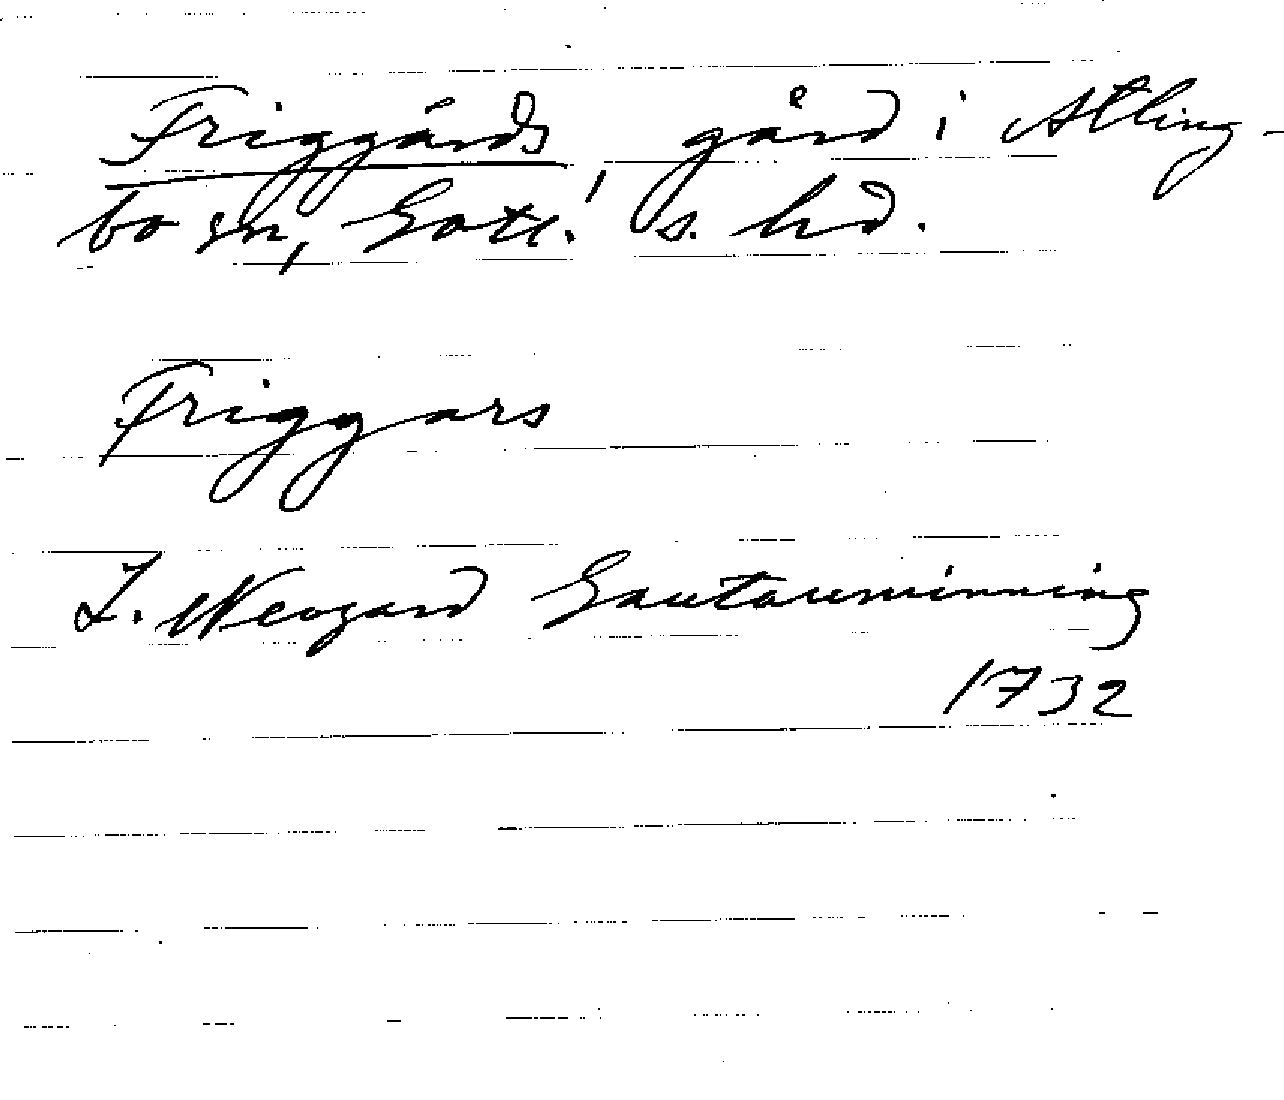 Friggårds, gård i Atling-
bo sn, Gotl. s. hd.
Friggars
Z. Neogard Gautauminning
1732